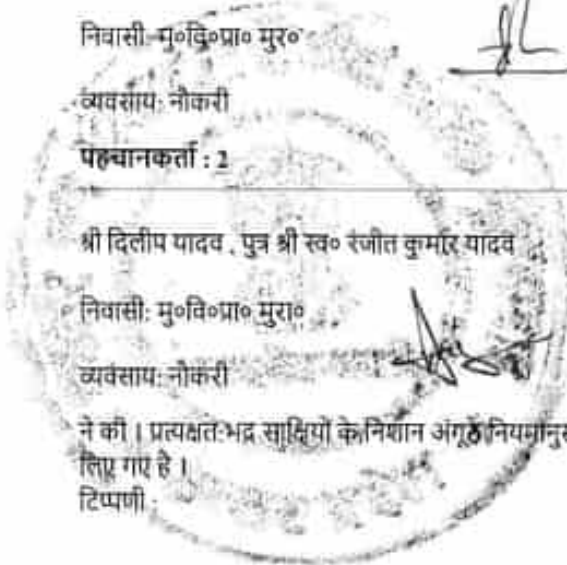 निवासी: मु०वि०प्रा० मुर०
व्यवसाय: नौकरी
पहचानकर्ता : 2
श्री दिलीप यादव , पुत्र श्री स्व० रंजीत कुमार यादव
निवासी: मु०वि०प्रा० मुरा०
व्यवसाय: नौकरी
ने की । प्रत्यक्षत:भद्र साक्षियों के निशान अंगूठे नियमानुस
लिए गए है ।
टिप्पणी :